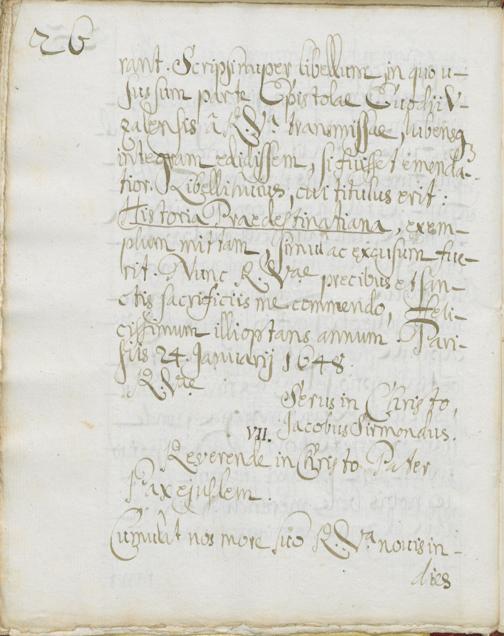 26
rant. Scripsi nuper libellum in quo u-
sus sum parte Epistolae Evodij V-
zalensis à R. Vᵃ. transmissae, lubensq
integram edidissem, si fuisset emenda-
tior. Libelli huius, cui titulus erit:
Historia Praedestinatiana, exem-
plum mittam, simul ac excusum fue-
rit. Nunc R. Vae precibus et san-
ctis sacrificijs me commendo, Feli-
cissimum illi optans annum. Pari-
sijs 24. Januarij 1648.
R. Vae
Servus in Christo,
Jacobus Sirmondus.
VII.
Reverende in Christo Pater
Pax ejusdem.
Cumulat nos more suo R. Vᵃ. novis in-
dies